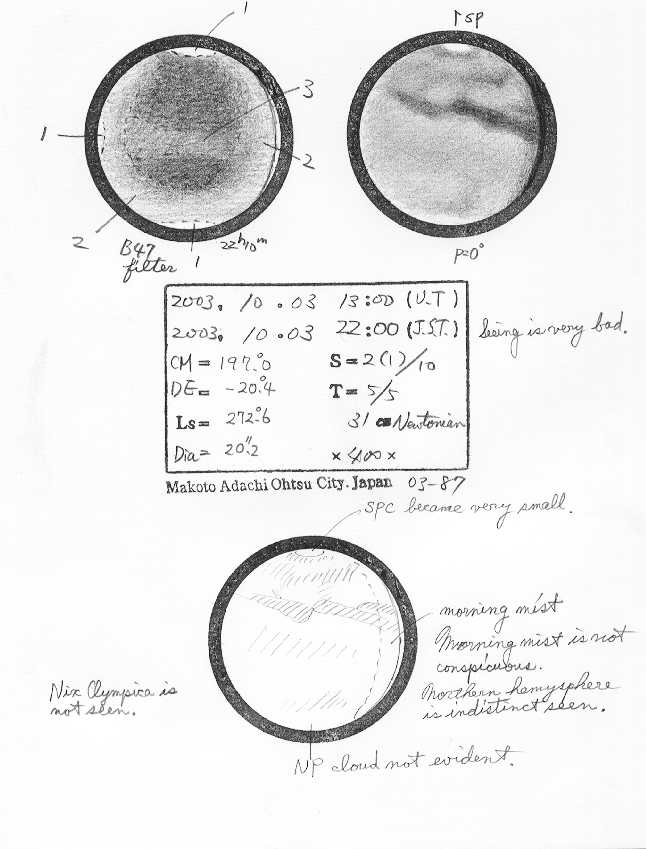 1
↑SP
3
1
2
2
B47
filter
1
22ʰ10ᵐ
P=0°
2003. 10.03 13:00 (U.T)
2003. 10.03 22:00 (J.S.T.)
Seeing is very bad.
CM = 197.°0 S = 2(1)/10
DE = -20.°4 T = 5/5
Ls = 272.°6 31 cm Newtonian
Dia = 20."2 ×400×
Makoto Adachi Ohtsu City. Japan 03-87
SPC became very small.
morning mist
Morning mist is not
conspicuous.
Northern hemysphere
is indistinct seen.
Nix Olympica is
not seen.
NP cloud not evident.